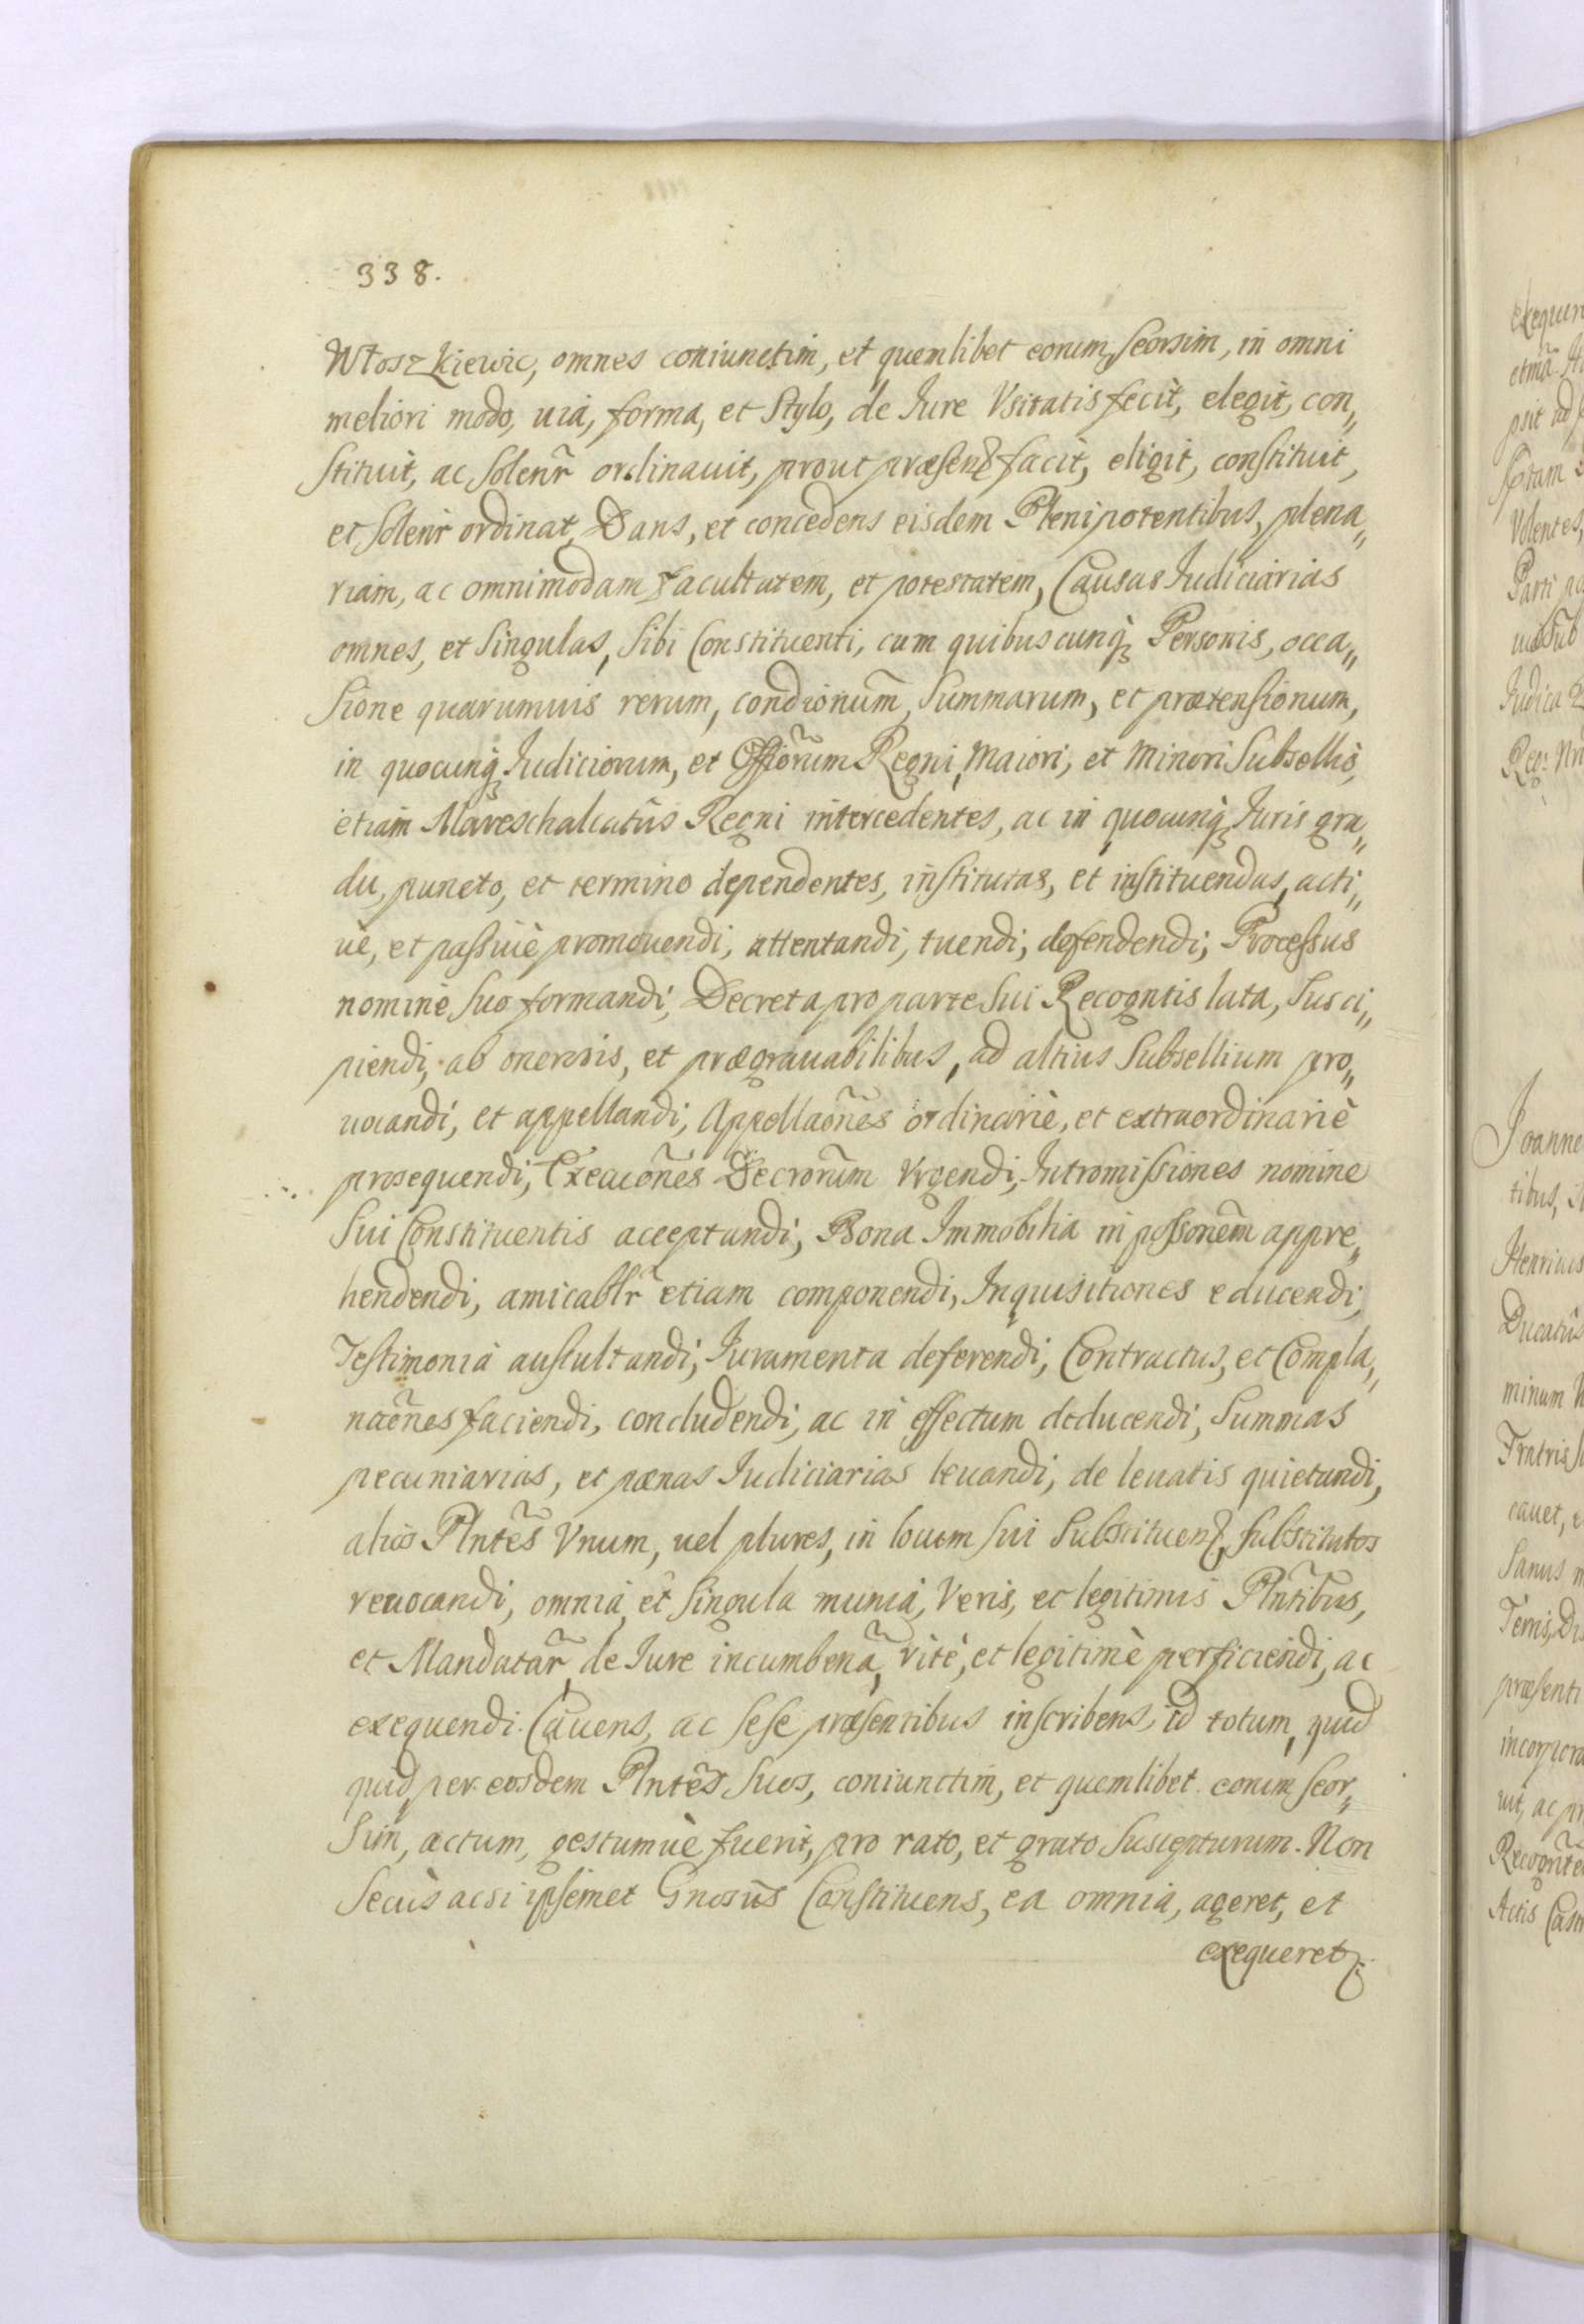 338.
Włoszkiewic, omnes coniunctim, et quemlibet eorum seorsim, in omni
meliori modo, uia, forma, et Stylo, de Iure Vsitatis fecit, elegit, con„
stituit, ac solenr̃ ordinauit, prout præsenꝫ facit, eligit, constituit,
et solenr̃ ordinat, Dans, et concedens eisdem Plenipotentibus, plena„
riam, ac omnimodam facultatem, et potestatem, Causas Iudiciarias
omnes, et Singulas, Sibi Constituenti, cum quibuscunqꝫ Personis, occa„
sione quarumuis rerum, condionum̃, Summarum, et prætensionum,
in quocunqꝫ Iudiciorum, et Offiorũm Regni, Maiori, et Minori Subsellio,
etiam Mareschalcatûs Regni intercedentes, ac in quocunqꝫ Iuris gra„
du, puncto, et termino dependentes, institutas, et instituendas, acti„
uè, et passiuè promouendi, attentandi, tuendi; defendendi; Processus
nominè suo formandi; Decreta pro parte sui Recogntis lata, susci„
piendi, ab onerosis, et prægrauabilibus, ad altius Subsellium pro„
uocandi, et appellandi; Appellaoñes ordinariè, et extraordinariè
prosequendi; Execuoñes Decrorũm Vrgendi; Intromissiones nomine
sui Constituentis acceptandi; Bona Immobilia in possonẽm appre„
hendendi, amicablr̃ etiam componendi, Inquisitiones educendi;
Testimonia auscultandi; Iuramenta deferendi; Contractus, et Compla„
naoñes faciendi, concludendi; ac in effectum deducendi; Summas
pecuniarias, et pænas Iudiciarias leuandi; de leuatis quietandi,
alios Plntẽs Vnum, uel plures, in locum sui Substituenꝫ, substitutos
reuocandi, omnia et singula munia, Veris, et legitimis Plntĩbus,
et Mandatar̃ de Iure incumbenã, ritè, et legitimè perficiendi, ac
exequendi. Cauens, ac sese præsentibus inscribens, id totum, quid
quid per eosdem Plntẽs suos, coniunctim, et quemlibet eorum seor„
sim, actum, gestumuè fuerit, pro rato, et grato suscepturum. Non
secùs acsi ipsemet Gnosũs Constituens, ea omnia, ageret, et
exequeretꝫ.